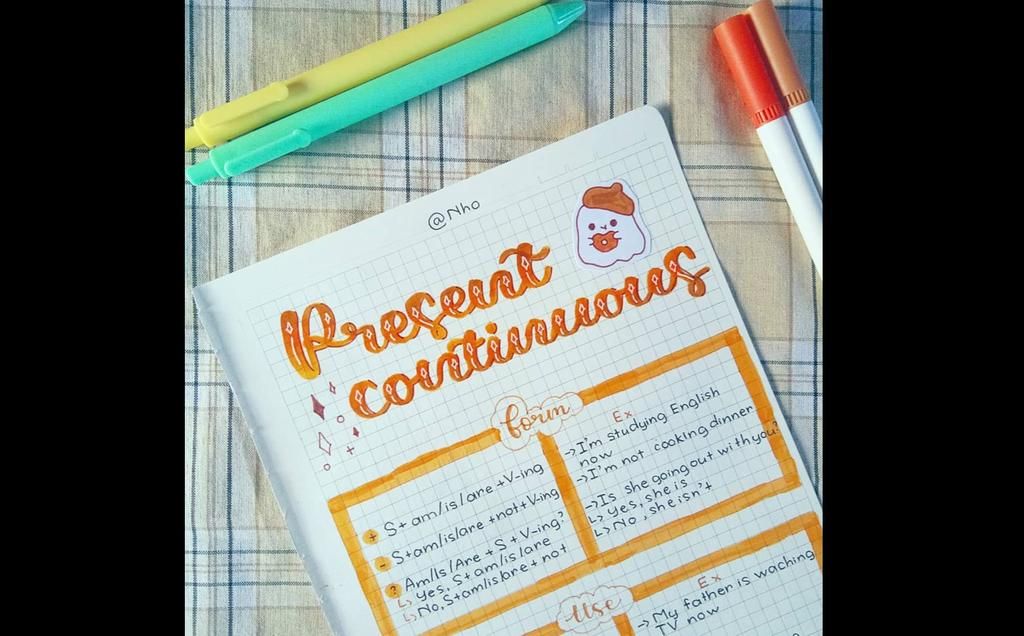 @Nho
Present
continuous
form
+ S+ am/is/are +V-ing
- S+am/is/are +not+V-ing
? Am/Is/Are + S + V-ing?
↳ Yes, S+am/is/are
↳ No, S+am/is/are + not
Ex
→ I'm studying English
now
→ I'm not cooking dinner
→ Is she going out with you?
↳ Yes, she is
↳ No, she isn't
Use
Ex
→ My father is waching
TV now